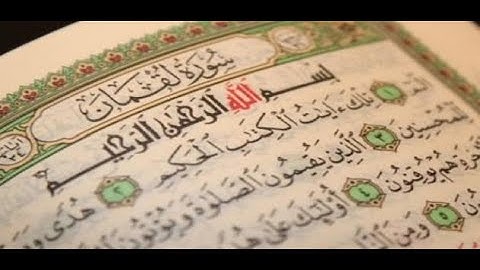 سُورَةُ لُقْمَان
بِسْمِ اللَّهِ الرَّحْمَٰنِ الرَّحِيمِ
الٓمٓ ١ تِلْكَ ءَايَٰتُ الْكِتَٰبِ الْحَكِيمِ ٢ هُدًى
لِلْمُحْسِنِينَ ٣ الَّذِينَ يُقِيمُونَ الصَّلَوٰةَ وَيُؤْتُونَ
هُمْ يُوقِنُونَ ٤ أُوْلَٰٓئِكَ عَلَىٰ
٥ وَمِنَ